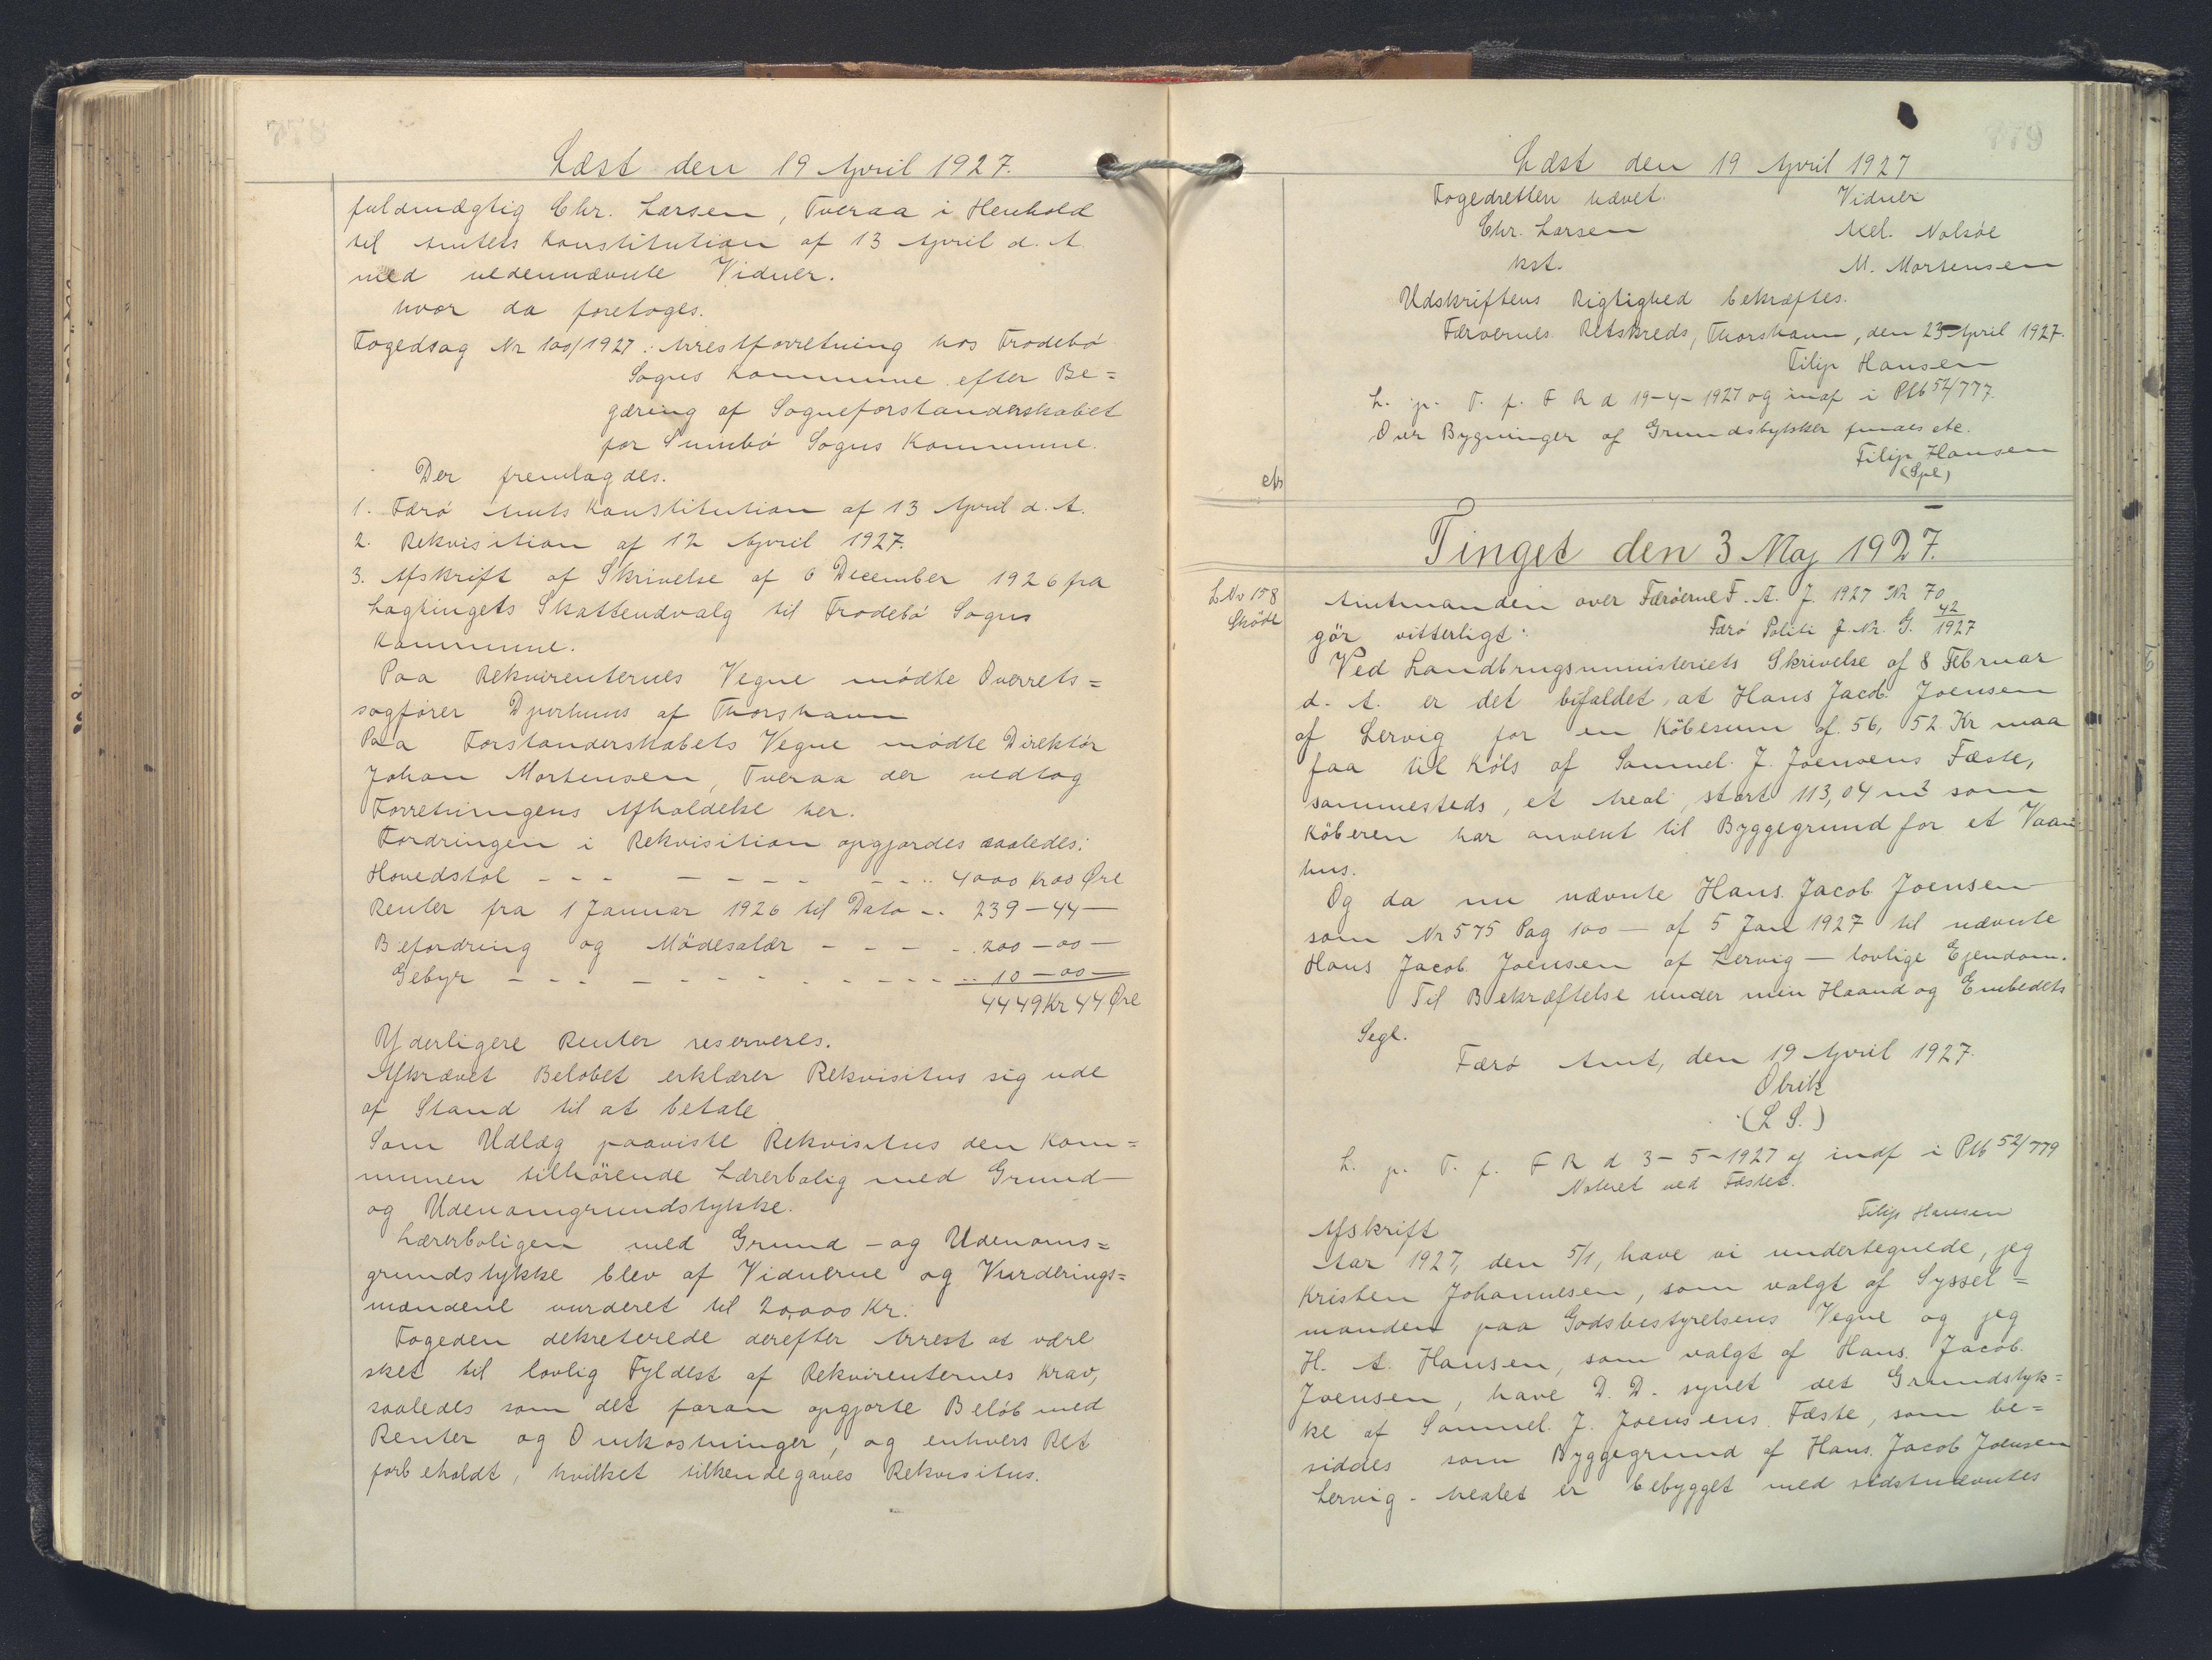 Læst den 19 April 1927.
fuldmægtig Chr. Larsen, Tveraa i Henhold
til Amtets Konstitution af 13 April d. A.
med undennævnte Vidner.
hvor da foretoges.
Fogedsag Nr 100/1927: Arrestforretning hos Frodebø
Sogns Kommune efter Be=
gæring af Sogneforstanderskabet
for Sumbø Sogns Kommune.
Der fremlagdes.
1. Færø Amts Konstitution af 13 April d. A.
2. Rekvisition af 12 April 1927.
3. Afskrift af Skrivelse af 6 December 1926 fra
Lagtingets Skatteudvalg til Frodebø Sogns
Kommune.
Paa Rekvirenternes Vegne mødte Overrets=
sagfører Djurhuus af Thorshavn
Paa Forstanderskabets Vegne mødte Direktør
Johan Mortensen, Tveraa der vedtog
Forretningens Afholdelse her.
Fordringen i Rekvisition opgjordes saaledes:
Hovedstol - - - - - - - - - .. 4000 Kr 00 Øre
Renter fra 1 Januar 1926 til Dato -. 239-44-
Befordring og Mødesalær - - - - . 200-00-
Gebyr - - - - - - - - - - - .. 10-00-
4449 Kr 44 Øre
Yderligere Renter reserveres.
Afkrævet Beløbet erklærer Rekvisitus sig ude
af Stand til at betale
Som Udlæg paaviste Rekvisitus den Kom=
munen tilhørende Lærerbolig med Grund-
og Udenomgrundstykke.
Lærerboligen med Grund- og Udenoms=
grundstykke blev af Vidnerne og Vurderings=
mændene vurderet til 20,000 Kr.
Fogeden dekreterede derefter Arrest at være
sket til lovlig Fyldest af Rekvirenternes Krav,
saaledes som det foran opgjorte Beløb med
Renter og Omkostninger, og enhvers Ret
forbeholdt, hvilket tilkendegaves Rekvisitus.
Læst den 19 April 1927
Fogedretten hævet. Vidner
Chr. Larsen Mel. Nolsøe
kst. M. Mortensen
Udskriftens Rigtighed bekræftes.
Færøernes Retskreds, Thorshavn, den 23 April 1927.
Filip Hansen
L. p. T. f. F R d 19-4-1927 og indf i Ptb 52/777.
Over Bygninger af Grundstykker findes etc.
Filip Hansen
(Spl)
Tinget den 3 Maj 1927.
L Nr 158
Skøde
Amtmanden over Færøerne F. A. J. 1927 Nr 70
gör vitterligt: Færø Politi J. Nr. G. 42/1927
Ved Landbrugsministeriets Skrivelse af 8 Februar
d. A. er det bifaldet, at Hans Jacob Joensen
af Lervig for en Købesum af 56,52 Kr maa
faa til Købs af Sammel. J. Joensens Fæste,
sammesteds, et Areal, stort 113,04 m² som
Köberen har anvent til Byggegrund for et Vaan
hus.
Og da nu nævnte Hans. Jacob Joensen
som Nr 575 Pag 100 - af 5 Jan 1927 til nævnte
Hans Jacob Joensen af Lervig - lovlige Ejendom.
Til Bekræftelse under min Haand og Embedets
Segl.
Færø Amt, den 19 April 1927.
Obrik
(L S.)
L. p. T. f. F R d 3-5-1927 og indf i Ptb 52/779
Noteret ved Fæstet.
Filip Hansen
Afskrift
Aar 1927, den 5/1, have vi undertegnede, jeg
Kristen Johannesen, som valgt af Syssel=
manden paa Godsbestyrelsens Vegne og jeg
H. A. Hansen, som valgt af Hans. Jacob.
Joensen, have D. D. synet det Grundstyk=
ke af Sammel. J. Joensens Fæste, som be=
siddes som Byggegrund af Hans. Jacob Joensen
Lervig. Arealet er bebygget med sidstnævntes